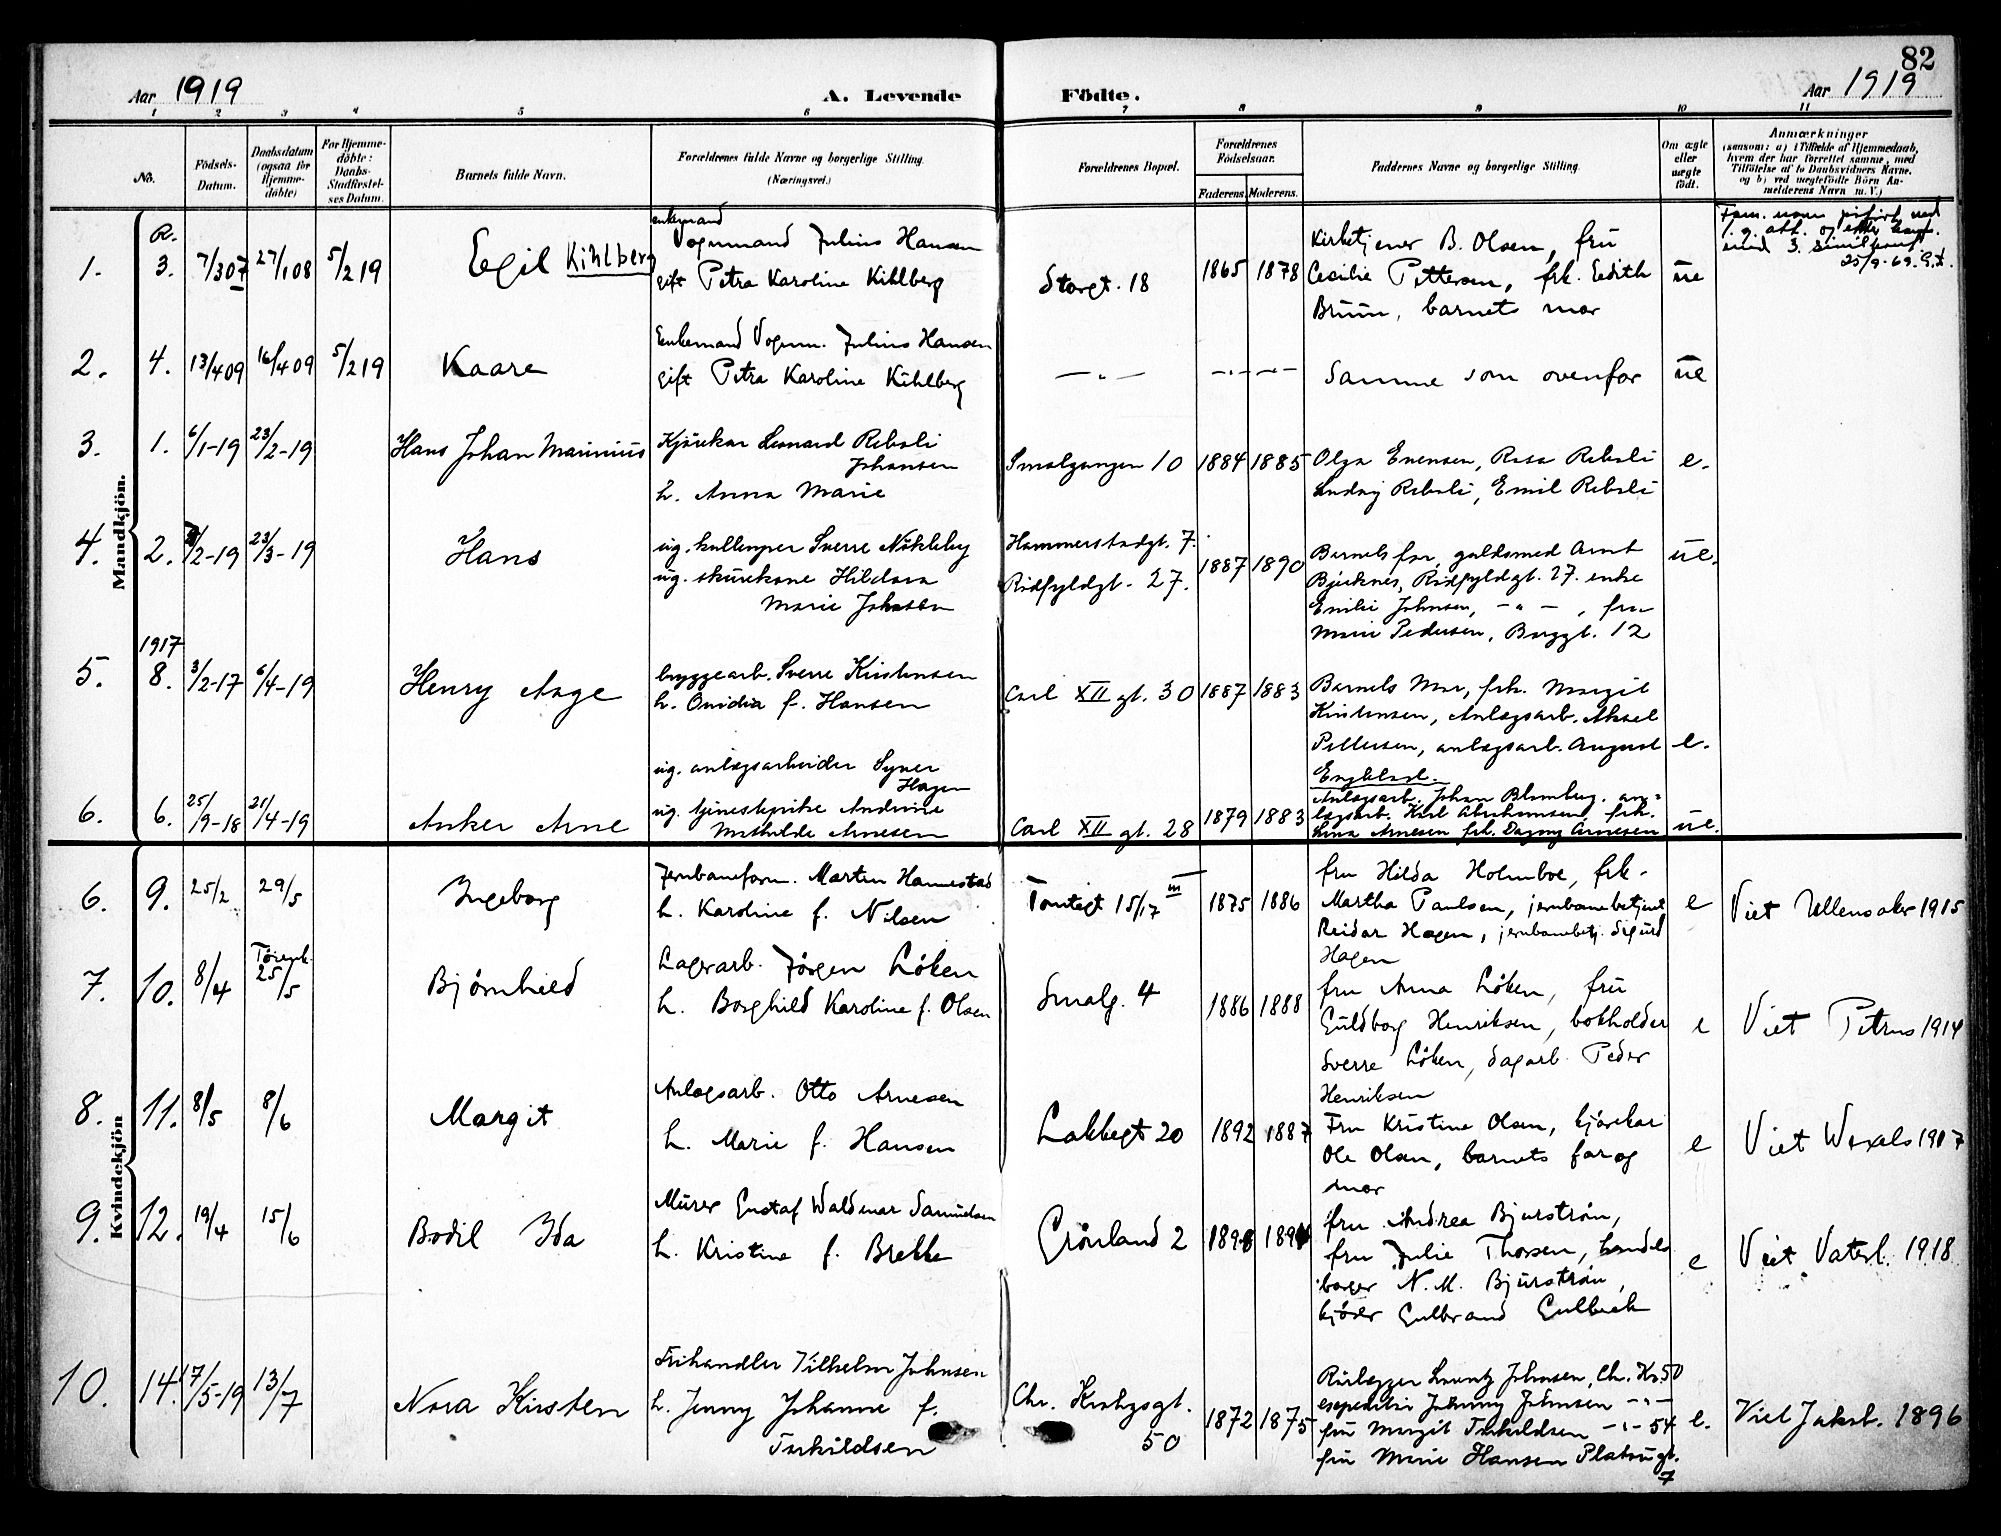 82
Aar 1919
A. Levende Födte.
Aar 1919
1 2 3 4 5 6 7 8 9 10 11
No.
Födsels-Datum.
Daabsdatum (ogsaa for Hjemme-döbte)
For Hjemme-döbte: Daabs-Stadfæstel-ses Datum.
Barnets fulde Navn.
Forældrenes fulde Navne og borgerlige Stilling.
(Næringsvei.)
Forældrenes Bopæl.
Forældrenes Födselsaar.
Faderens. Moderens.
Faddernes Navne og borgerlige Stilling.
Om ægte eller uægte födt.
Anmærkninger
(saasom: a) i Tilfælde af Hjemmedaab, hvem der har forrettet samme, med Tilföielse af to Daabsvidners Navne, og b) ved uægtefödte Börn An-melderens Navn m. V.)
Mandkjön.
1. R. 3. 7/3 07 27/1 08 5/2 19
Egil Kihlberg
enkemand
Vognmand Julius Hansen
gift Petra Karoline Kihlberg
Storgt. 18
1865 1878
Kirketjener B. Olsen, fru
Cecilie Pettersen, frk. Edith
Bruun, barnets mor
ue
25/9-69.
2. 4. 13/4 09 16/4 09 5/2 19
Kaare
Enkemand Vognm. Julius Hansen
gift Petra Karoline Kihlberg
— „ — — „ —
Samme som ovenfor
ue
3. 1. 6/1-19 23/2-19
Hans Johan Marinius
Kjørekar Leonard Reboli
Johansen
h. Anna Marie
Smalgangen 10
1884 1885
Olga Evensen, Rosa Reboli
Ludvig Reboli, Emil Reboli
e.
4. 2. /2-19 23/3-19
Hans
ug. kullemper Sverre Nökleby
ug. skurekone Hildara
Marie Johnsen
Hammerstadgt. 7.
Rödfyldgt. 27.
1887 1890
Barnets far, guldsmed Arnt
Bjerknes, Rödfyldgt. 27. enke
Emilie Johnsen, — „ —, fru
Marie Pedersen, Borggt. 12
ue.
5. 1917 8. 3/2-17 6/4-19
Henry Aage
bryggearb. Sverre Kristensen
h. Ovidia f. Hansen
Carl XII gt. 30
1887 1883
Barnets Mor, frk. Margit
Kristensen, Anlægsarb. Aksel
Pettersen, anlægsarb. August
Engblad.
e.
6. 6. 25/9-18 21/4-19
Anker Arne
ug. anlægsarbeider Syver
Hagen
ug. tjenestepike Andrine
Mathilde Arnesen
Carl XII gt. 28
1879 1883
Anlægsarb. Johan Blomberg, an-
lægsarb. Karl Abrahamsen, frk.
Lina Arnesen frk. Dagny Arnesen
ue.
Kvindekjön
6. 9. 25/2 29/5
Ingeborg
Jernbaneform. Martin Hannestad
h. Karoline f. Nilsen
Tomtegt 15/17 III
1875 1886
fru Hilda Holmboe, frk.
Martha Paulsen, jernbanebetjent
Reidar Hagen, jernbanebetj. Sigurd
Hagen
e
Viet Ullensaker 1915
7. 10. 8/4 Tøienk. 25/5
Bjørnhild
Lagerarb. Jörgen Löken
h. Borghild Karoline f. Olsen
Smalg. 4
1886 1888
fru Anna Löken, fru
Guldborg Henriksen, bokholder
Sverre Löken, dagarb. Peder
Henriksen
e
Viet Petrus 1914
8. 11. 8/5 8/6
Margit
Anlægsarb. Otto Arnesen
h. Marie f. Hansen
Lakkegt 20
1892 1887
Fru Kristine Olsen, kjørekar
Ole Olsen, barnets far og
mor
e
Viet Wexels 1917
9. 12. 19/4 15/6
Bodil Ida
Murer Gustaf Waldemar Samuelsen
h. Kristine f. Brekke
Grønland 2
fru Andrea Bjurstrøm,
fru Julie Thorsen, handels
borger N. M. Bjurstrøm,
kjører Gulbrand Gulbæck
e
Viet Vaterl. 1918
10. 14. 17/5-19 13/7
Nora Kirsten
Frihandler Vilhelm Johnsen
h. Jenny Johanne f.
Terkildsen
Chr. Krohgsgt.
50
1872 1875
Rørlægger Lorentz Johnsen, Ch. Kr. 50
Johnsen — „ —
fru Margit Terkildsen — „ — 54
fru Marie Hansen Platougt.
7
e.
Viet Jakob. 1896